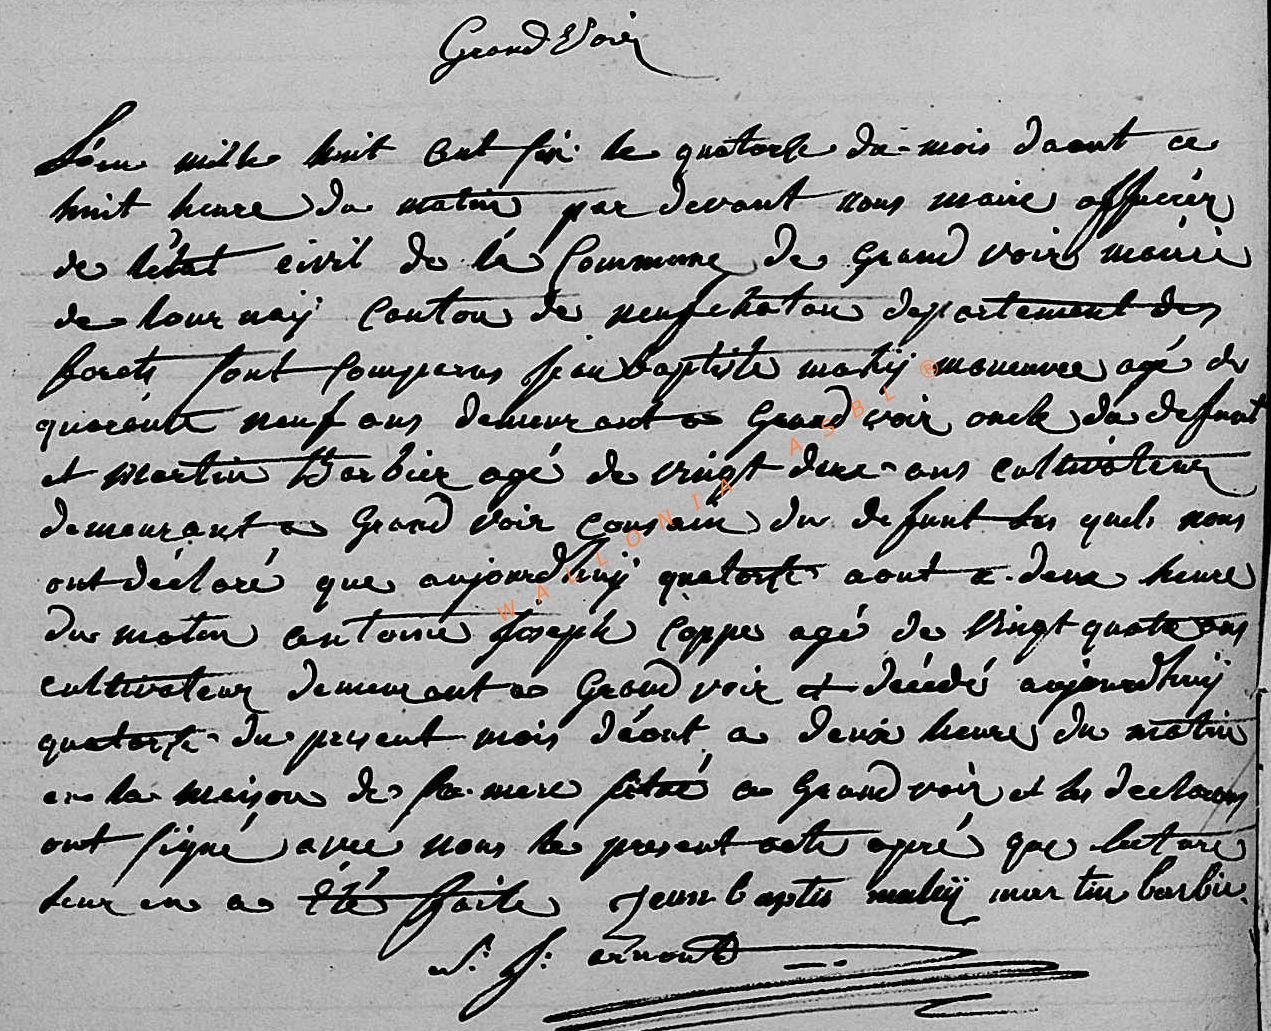 Grand Voir
L'an mille huit cent six le quatorze du mois daout ce
huit heure du matin par devant nous maire officier
de l'état civil de la Commune de Grand voir mairie
de tournay Canton de neufchatau departement des
forets sont Comparus jean baptiste mahij maneuvre agé de
quarante neuf ans demeurant a Grand voir oncle du defunt
et Martin Barbier agé de vingt deux ans cultivateur
demeurant a Grand Voir Cousain du defunt les quels nous
ont déclaré que aujourd'huij quatorse aout a deux heure
du matin antoine Joseph Coppe agé de Vingt quatre ans
cultivateur demeurant a Grand voir est décédé aujourdhuij
quatorse du present mois d'aout a deux heure du matin
en la maison de sa mere situé a Grand voir et les declarans
ont signé avec nous le present acte apré que lecture
leur en a été faite Jean baptis mahij martin barbie
arnould
WALLONIA ASBL ®